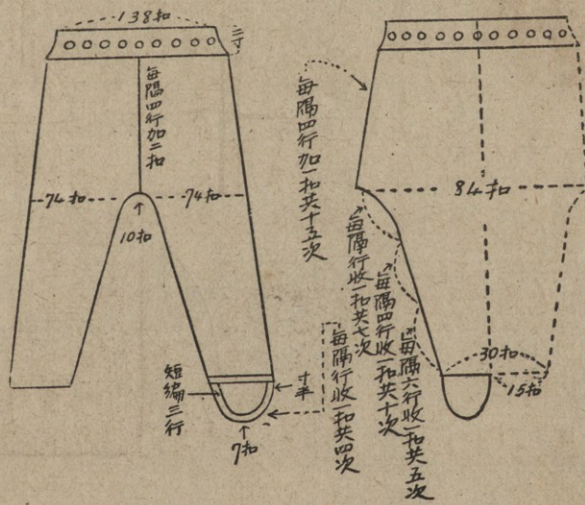 138扣
二寸
每隔四行加二扣
74扣
74扣
10扣
短編三行
寸半
7扣
每隔四行加一扣共十五次
84扣
每隔行收一扣共七次
每隔四行收一扣共十次
每隔六行收一扣共五次
每隔行收一扣共四次
30扣
15扣